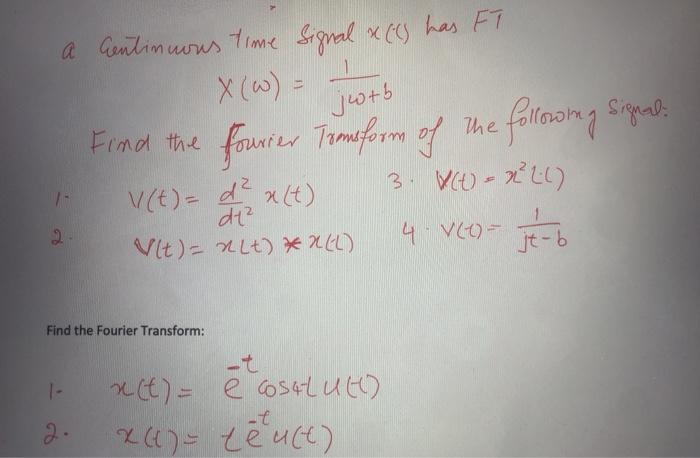 a Continuous time Signal x(t) has FT
X(ω) = 1/(jω+b)
Find the fourier Transform of the following Signal:
1- V(t) = d²/dt² x(t)
3. V(t) = x²(t)
2. V(t) = x(t) * x(t)
4. V(t) = 1/(jt-b)
Find the Fourier Transform:
1- x(t) = e^-t cos4t u(t)
2. x(t) = t e^-t u(t)